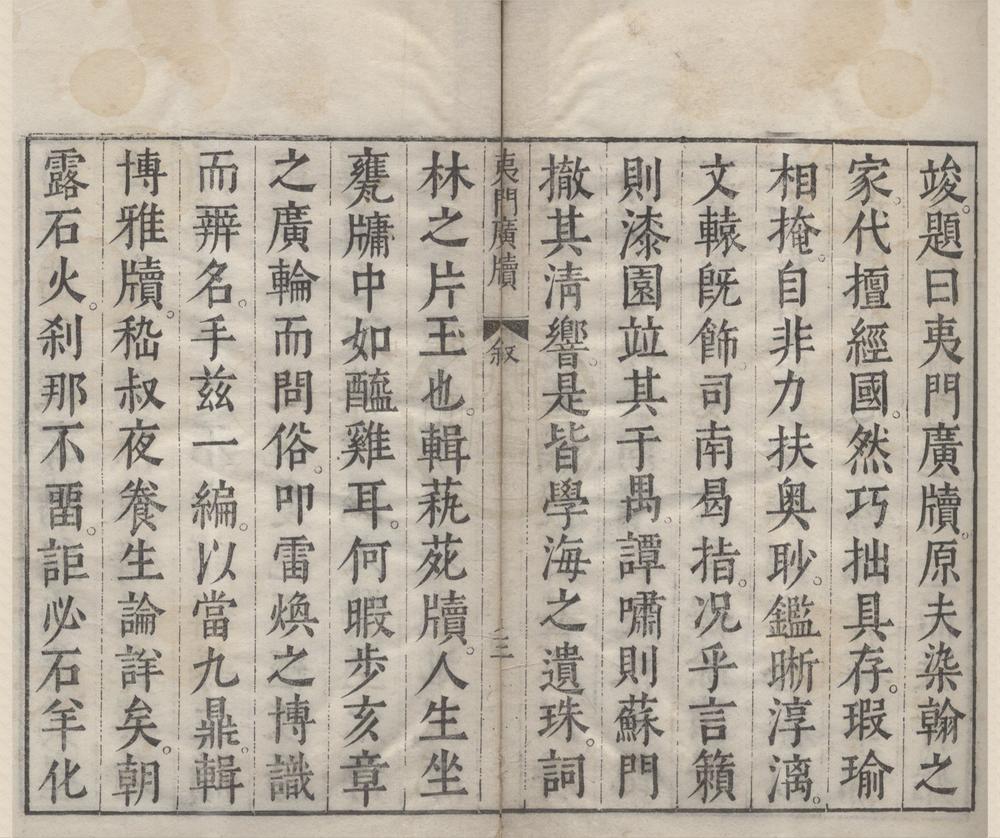 竣。題曰夷門廣牘。原夫染翰之
家。代擅經國。然巧拙具存。瑕瑜
相掩。自非力扶奥眇。鑑晣淳漓。
文轅旣飾。司南曷指。况乎言籟
則漆園竝其于喁。譚嘯則蘇門
撤其淸響。是皆學海之遺珠。詞
夷門廣牘
叙
三
林之片玉也。輯蓺苑牘。人生坐
甕牖中如醯雞耳。何暇步亥章
之廣輪而問俗。叩雷煥之博識
而辨名。手兹一編。以當九鼎。輯
博雅牘。嵇叔夜養生論詳矣。朝
露石火。刹那不畱。詎必石羊化